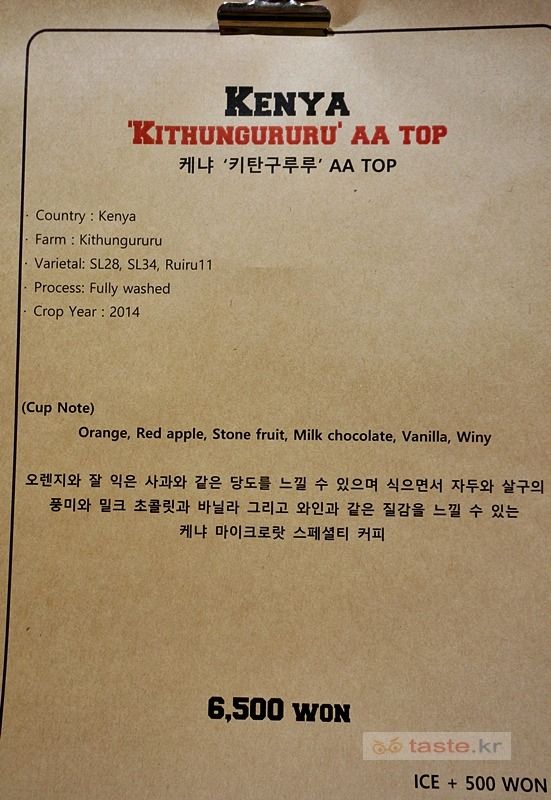 KENYA
'KITHUNGURURU' AA TOP
케냐 ‘키탄구루루’ AA TOP
· Country : Kenya
· Farm : Kithungururu
· Varietal: SL28, SL34, Ruiru11
· Process: Fully washed
· Crop Year : 2014
(Cup Note)
Orange, Red apple, Stone fruit, Milk chocolate, Vanilla, Winy
오렌지와 잘 익은 사과와 같은 당도를 느낄 수 있으며 식으면서 자두와 살구의
풍미와 밀크 초콜릿과 바닐라 그리고 와인과 같은 질감을 느낄 수 있는
케냐 마이크로랏 스페셜티 커피
6,500 WON
taste.kr
ICE + 500 WON